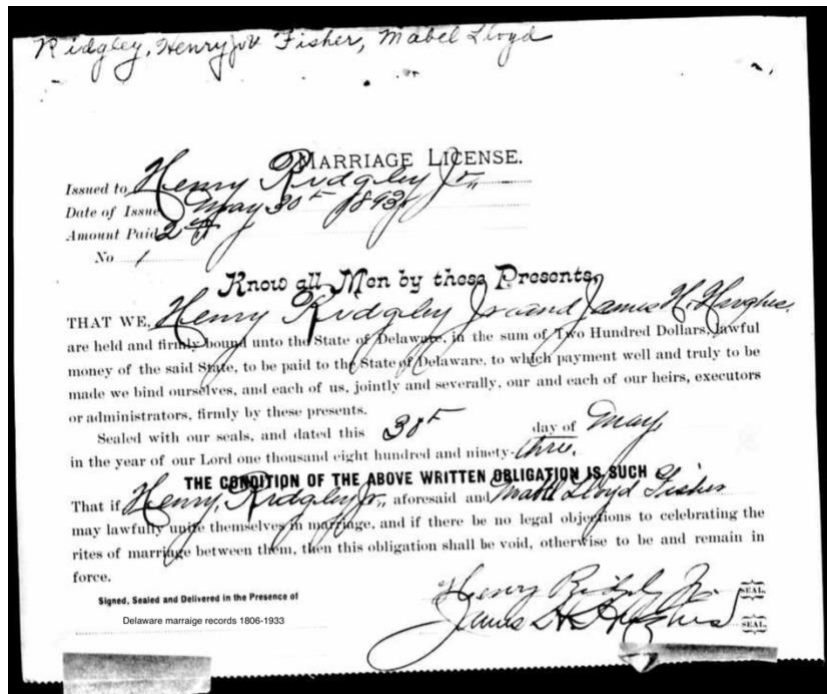 Ridgley, Henry Jr Fisher, Mabel Lloyd
MARRIAGE LICENSE.
Issued to Henry Ridgley Jr.,
Date of Issue May 30th 1893
Amount Paid 2
No 1
Know all Men by these Presents,
THAT WE, Henry Ridgley Jr and James H. Hughes.
are held and firmly bound unto the State of Delaware, in the sum of Two Hundred Dollars, lawful
money of the said State, to be paid to the State of Delaware, to which payment well and truly to be
made we bind ourselves, and each of us, jointly and severally, our and each of our heirs, executors
or administrators, firmly by these presents.
Sealed with our seals, and dated this 30th day of May,
in the year of our Lord one thousand eight hundred and ninety-three.
THE CONDITION OF THE ABOVE WRITTEN OBLIGATION IS SUCH
That if Henry, Ridgley Jr., aforesaid and Mabel Lloyd Fisher
may lawfully unite themselves in marriage, and if there be no legal objections to celebrating the
rites of marriage between them, then this obligation shall be void, otherwise to be and remain in
force.
Signed, Sealed and Delivered in the Presence of
Henry Ridgely Jr. SEAL.
Delaware marraige records 1806-1933
James H Hughes SEAL.